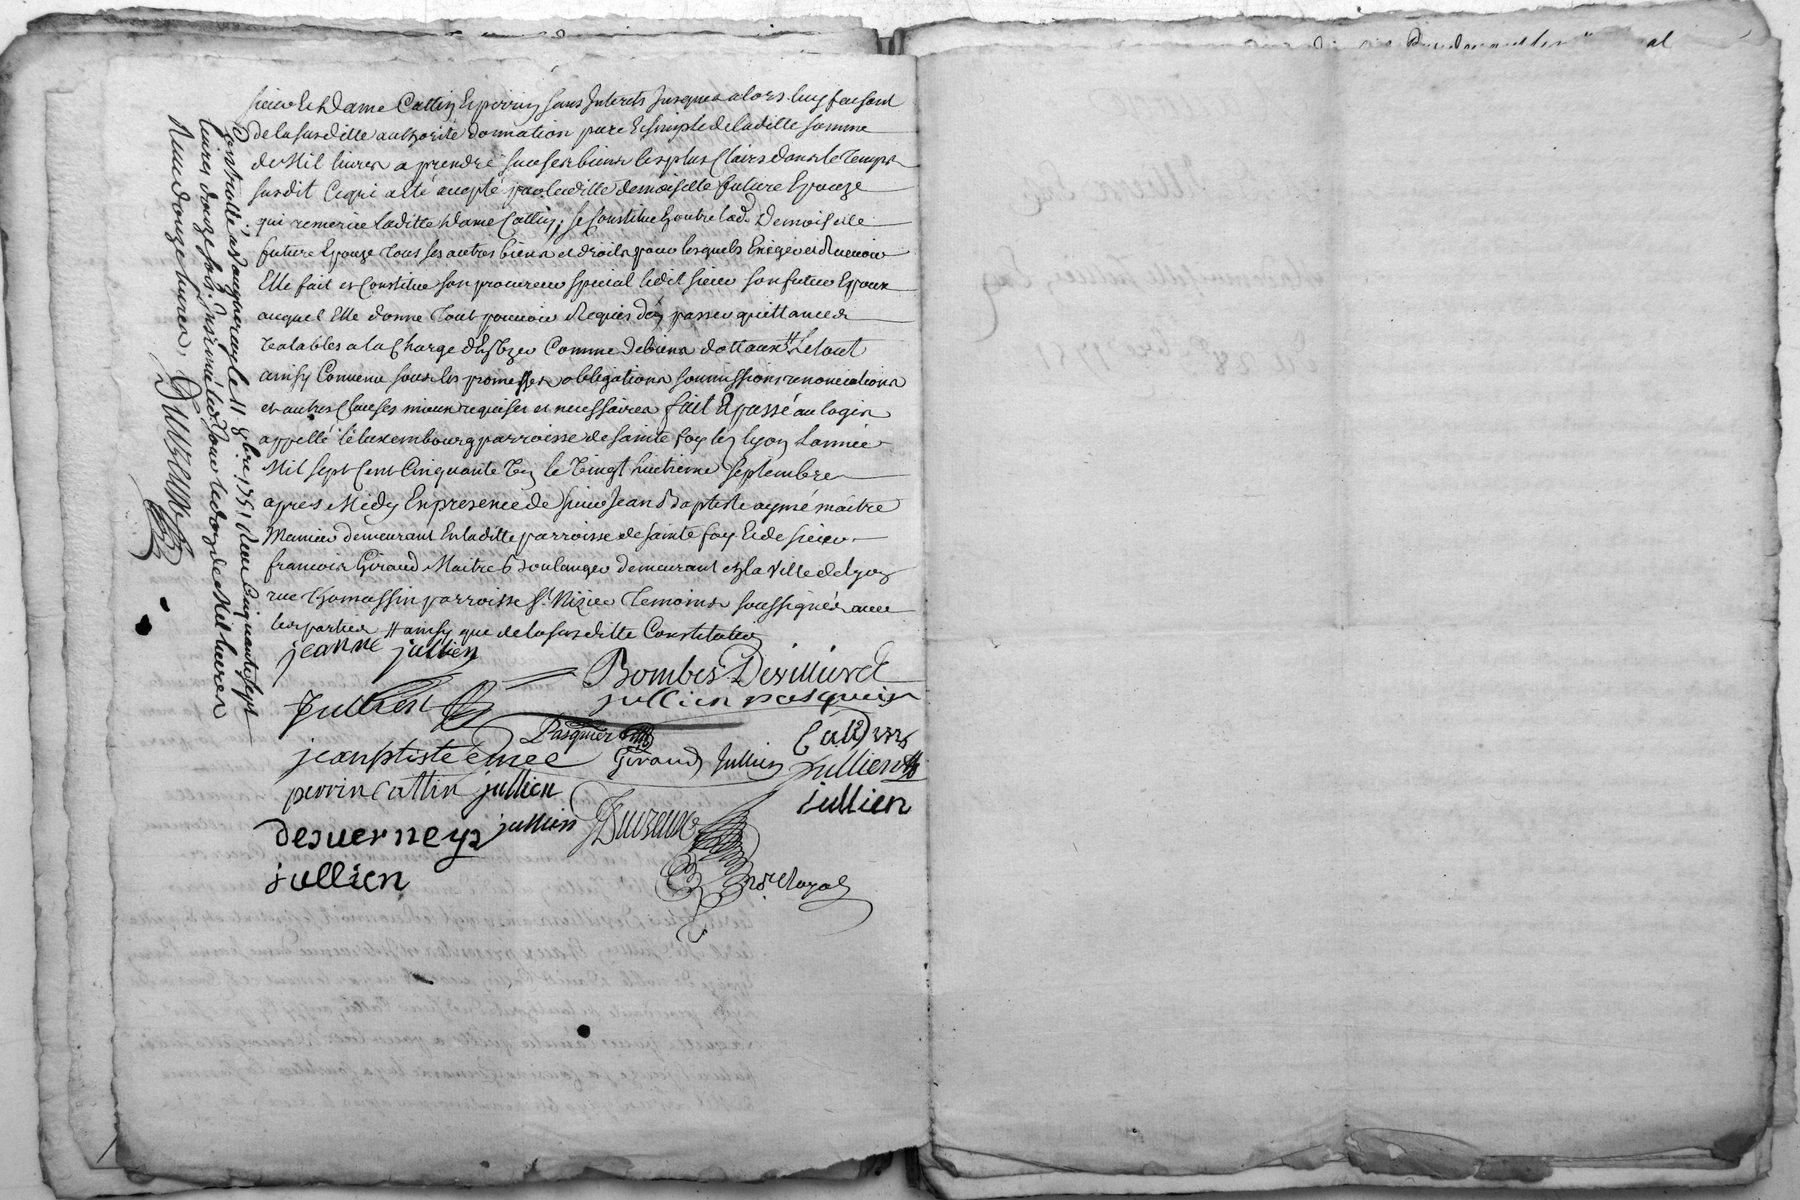 sieur et dame Cattin et perrin sans Interets Jusques alors luy faisant
de la susditte authorité donnation pure et simple de laditte somme
de Mil livres a prendre sur ses biens les plus Clairs dans le temps
susdit Ce qui a eté accepté par laditte demoiselle future Epouze
qui remercie laditte dame Cattin, se Constitue En outre lad.e Demoiselle
future Epouze tous ses autres biens et droits pour lesquels Exiger et Recevoir
Elle fait et Constitue son procureur special ledit sieur son futur Epoux
auquel Elle donne tout pouvoir Requis d'en passer quittances
valables a la Charge d'En Comme de biens dottaux Le tout
ainsy Convenu sous les promesses obligations soumissions renonciations
et autres Clauses mieux requises et necessaires fait Et passé au logis
appellé le luxembourg parroisse de sainte foy les lyon L'année
Mil sept Cent Cinquante Un le Vingt huitieme septembre
apres Midy En presence de sieur Jean Baptiste aymé maitre
demeurant En laditte parroisse de sainte foy Et de sieur
francois Giraud Maitre Boulanger demeurant En la Ville de lyon
rue Thomassin parroisse St. Nizier temoins soussignés avec
les parties # ainsy que de la susditte Constitution
jeanne jullien
Bombes Devilliers
jullien pasquier
Jullien
Pasquier
jean ptiste émée
Giraud Jullien
Jullien
perrin Cattin jullien
jullien
desverneys jullien
Duvzeune
jullien
No.re Royal
Controllé a vaugneray le 11 8bre 1751 Reçu Cinquante sept
livres douze sols Insinué led. Jour led. don de Mil livres
Reçu douze livres